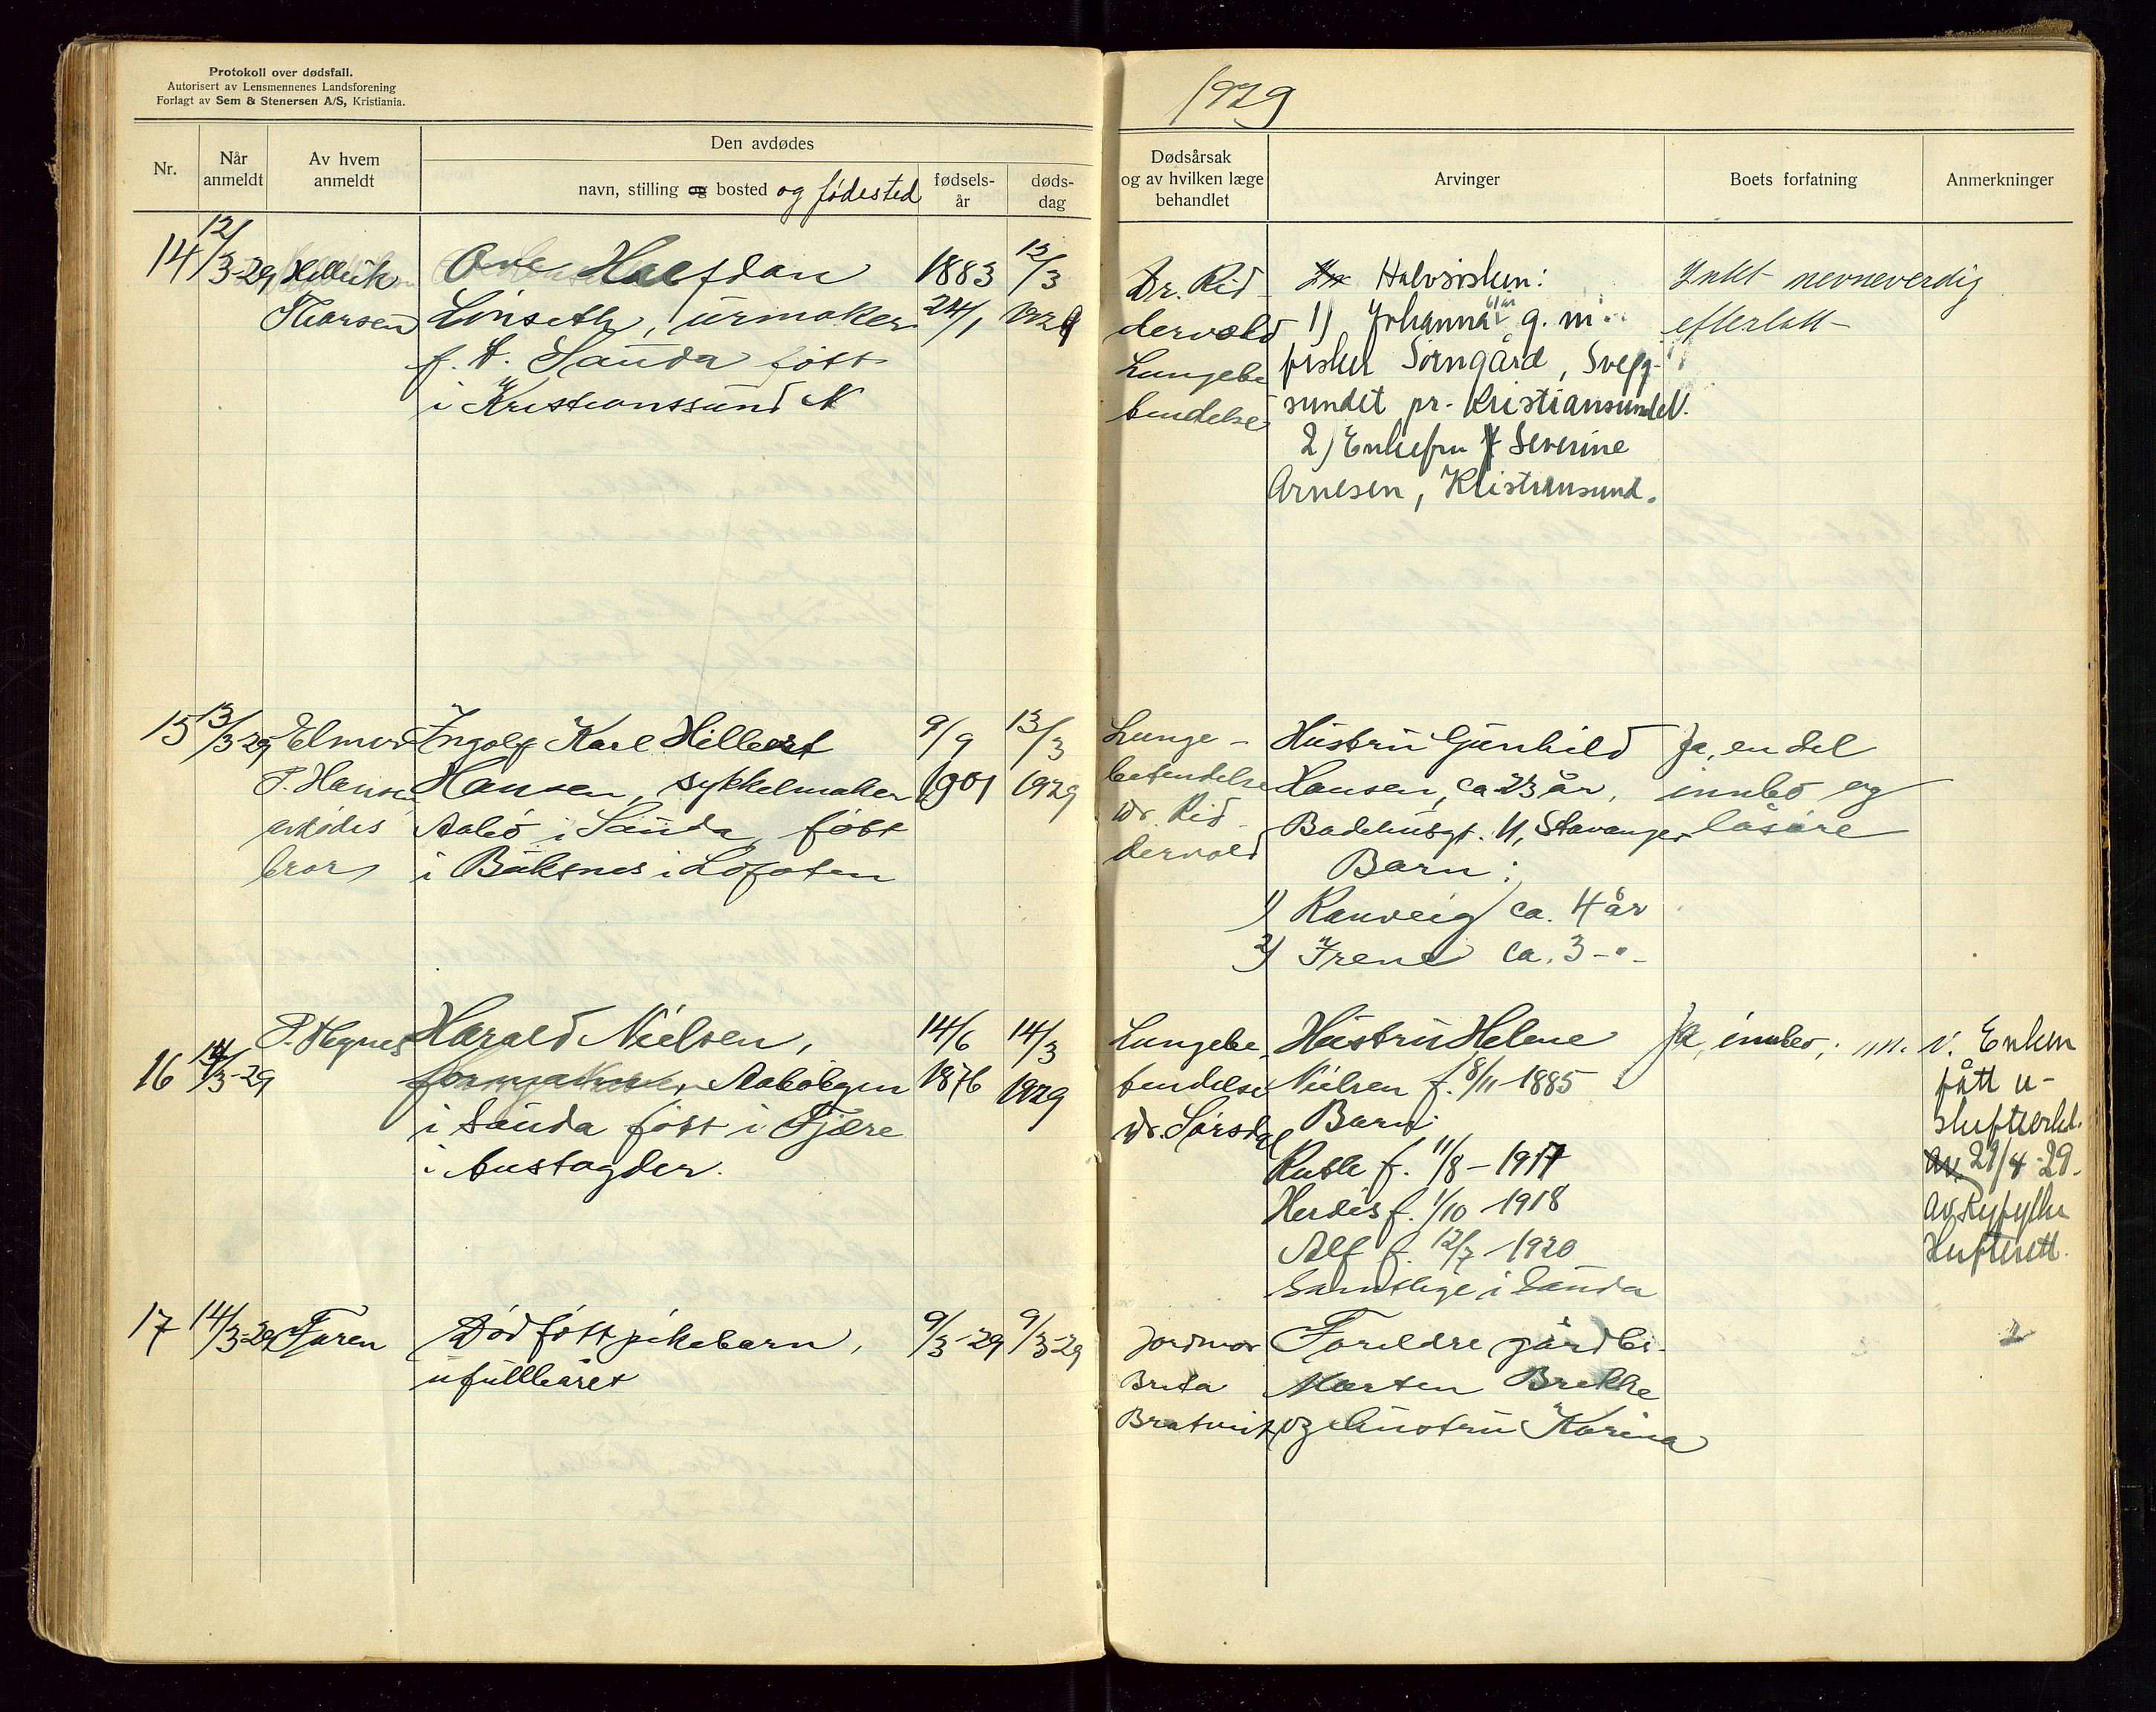 Protokoll over dødsfall.
Autorisert av Lensmennenes Landsforening
Forlagt av Sem & Stenersen A/S, Kristiania.
1929
Nr.
Når anmeldt
Av hvem anmeldt
Den avdødes
navn, stilling og bosted og fødested
fødsels-år
døds-dag
Dødsårsak og av hvilken læge behandlet
Arvinger
Boets forfatning
Anmerkninger
14 12/3-29
Thorsen
Ove Halfdan
Linseth, urmaker
f. t. Sauda født
i Kristianssund N
1883
24/1
12/3
1929
Dr. Rid-
dervold
Lungebe
tendelse
Halvsisken:
1) Johanna g. m.
fisker Sorngård, Svegg-
sundet pr. Kristiansund N.
2) Enkefru Severine
Arnesen, Kristiansund.
Intet nevneverdig
efterlatt
15 13/3-29
Elmer
P. Hansen
avdødes
bror
Ingolf Karl Hillbert
Hansen, sykkelmaker
Aabø i Sauda, født
i Buksnes i Lofoten
9/9
1901
13/3
1929
Lunge-
betendelse
Dr. Rid-
dervold
Hustru Gunhild
Hansen, ca 23 år,
Badehusgt. 11, Stavanger
Barn:
1) Ranveig ca. 4 år
2) Irene ca. 3 -"-
Ja, en del
innbo og
løsøre
16 14/3-29
P. Hegnes
Harald Nielsen,
Aabøbyen
i Sauda født i Fjære
i Austagder.
14/6
1876
14/3
1929
Lungebe
tendelse
Dr. Sørsdal
Hustru Helene
Nielsen f. 8/11-1885
Barn:
Ruth f. 11/8-1917
Herdis f. 1/10-1918
Alf f. 12/7-1920
Samtlige i Sauda
Ja, innbo;
Enken
fått u-
skifteerkl.
av 29/4-29.
av Ryfylke
skifterett.
17 14/3-29
Faren
Dødfött pikebarn,
ufullbåret
9/3-29
9/3-29
Jordmor
Brita
Bratveit
Foreldre gårdbr.
Morten Brekke
og hustru Karina